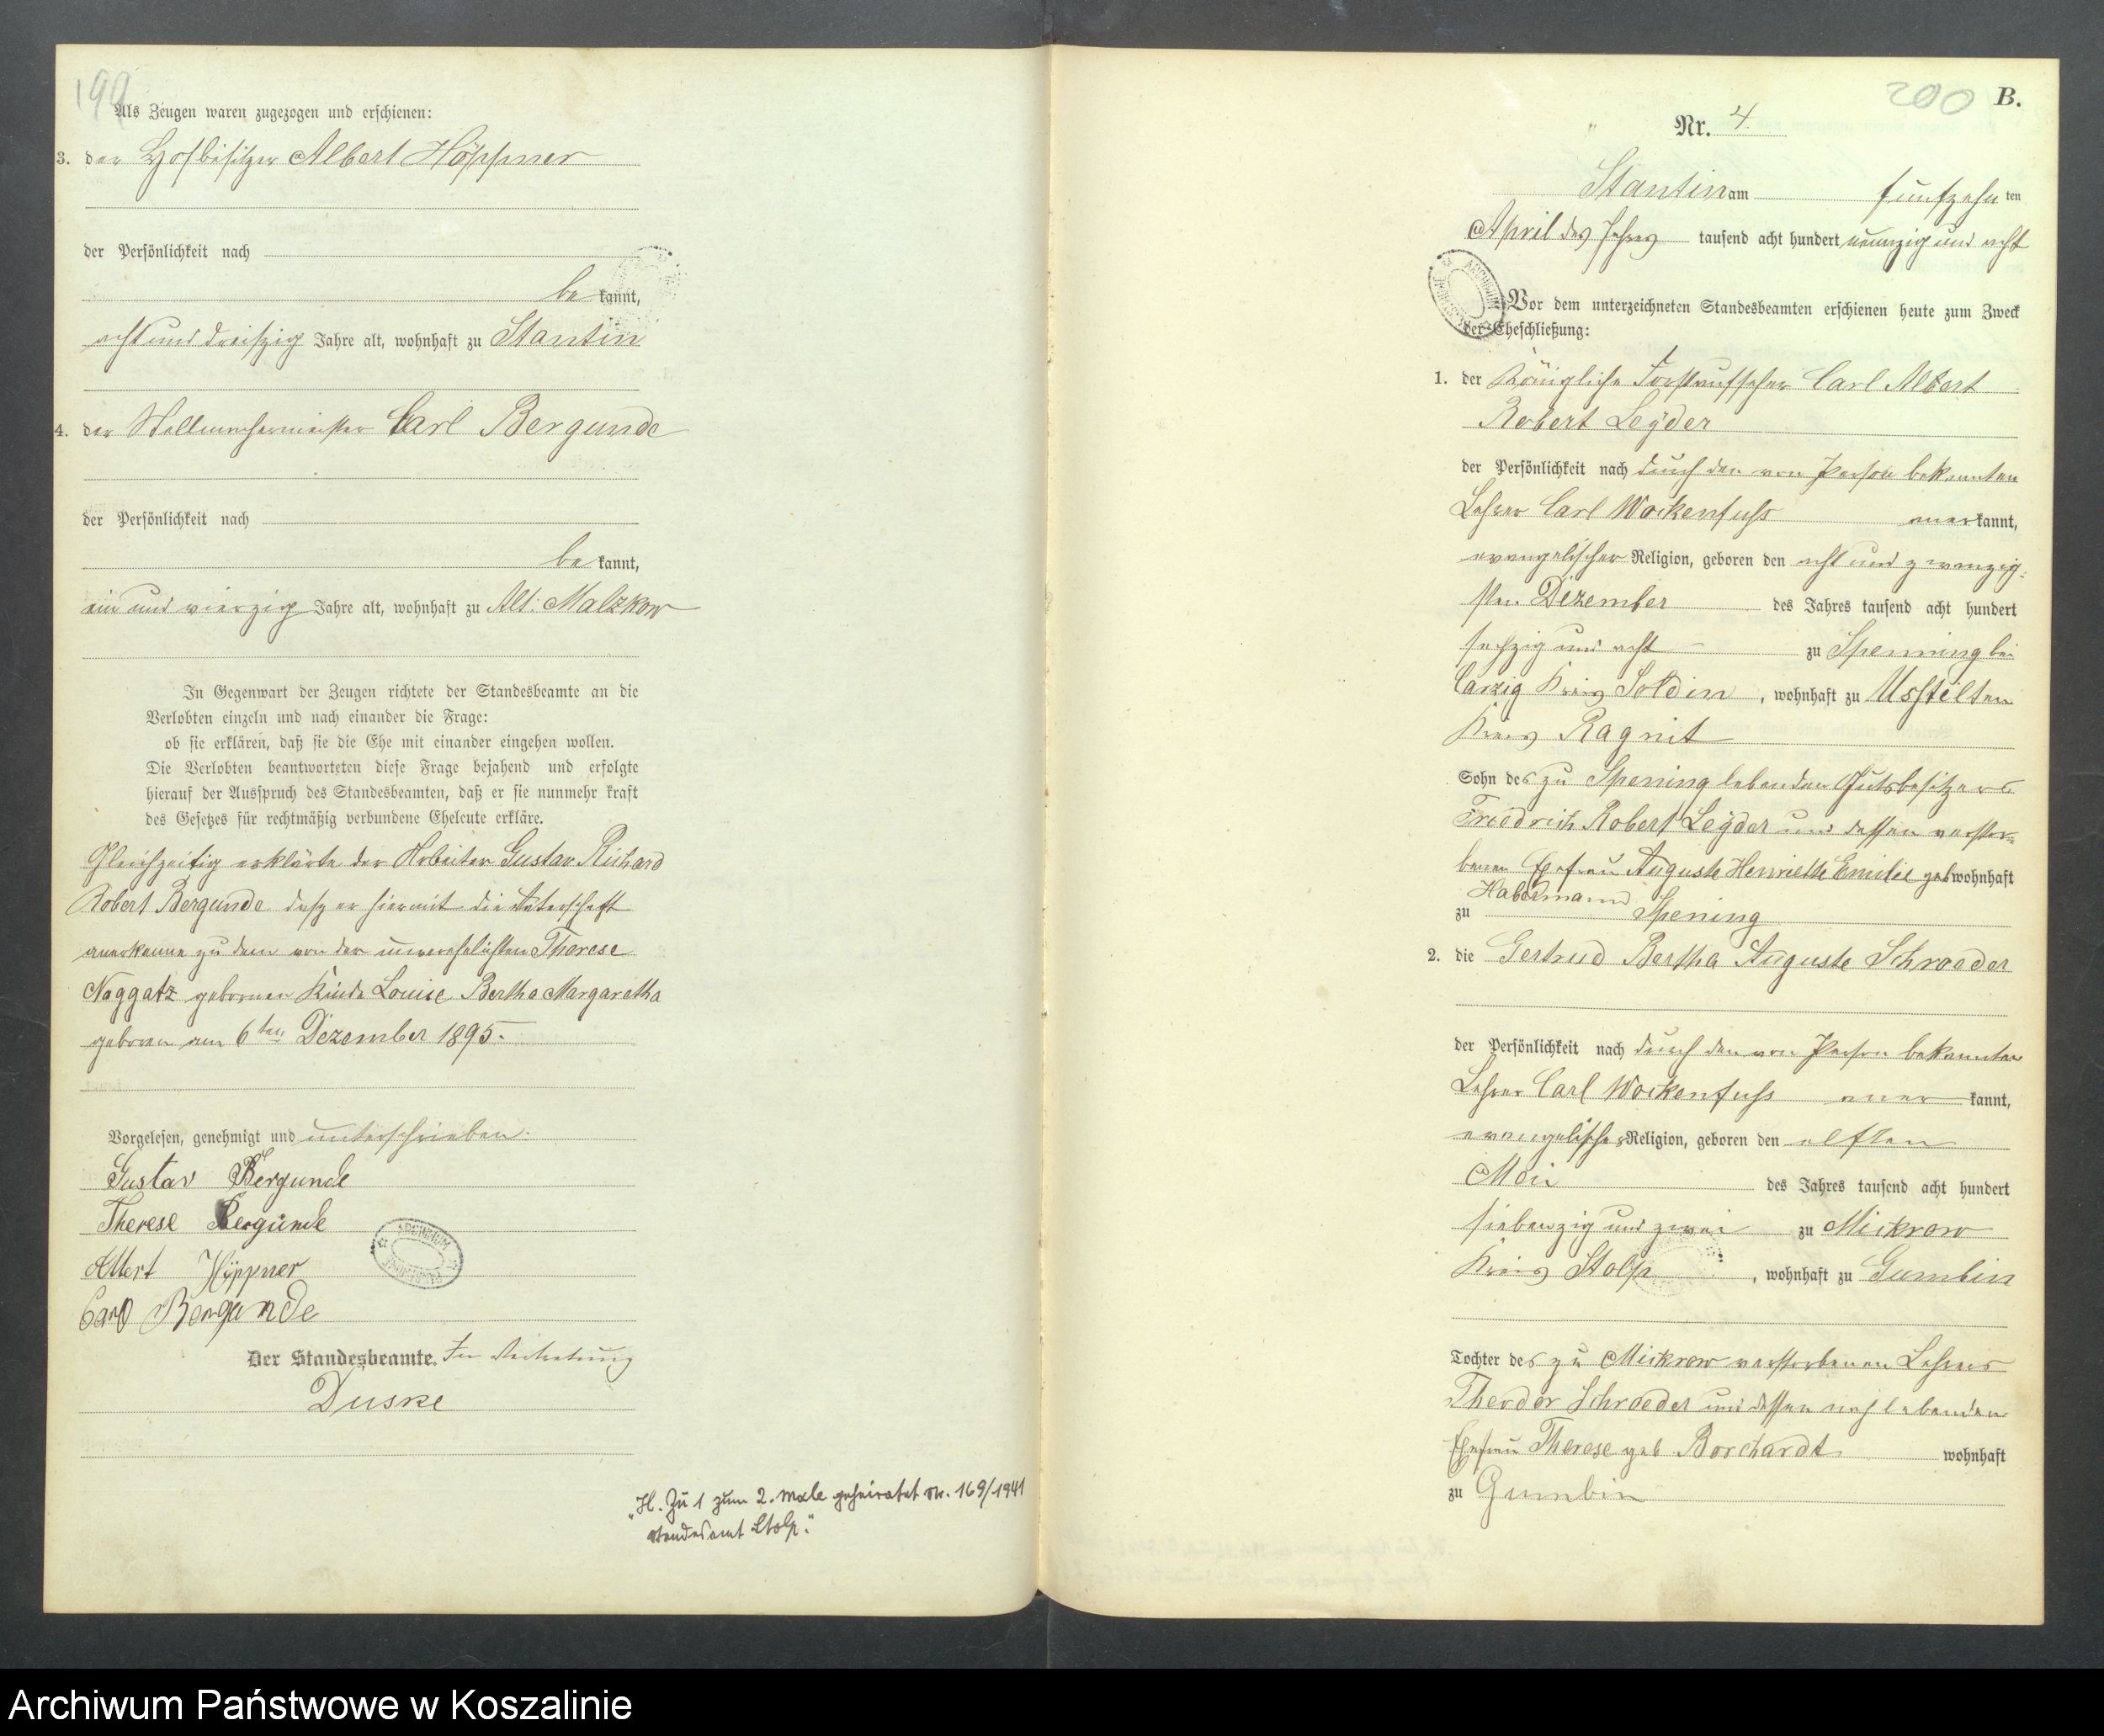 199
Als Zeugen waren zugezogen und erschienen:
3. der Hofbesitzer Albert Höppner
der Persönlichkeit nach
be kannt,
acht und dreiszig Jahre alt, wohnhaft zu Stantin
4. der Stellmachermeister Carl Bergunde
der Persönlichkeit nach
be kannt,
ein und vierzig Jahre alt, wohnhaft zu Alt. Malzkow
In Gegenwart der Zeugen richtete der Standesbeamte an die
Verlobten einzeln und nach einander die Frage:
ob sie erklären, daß sie die Ehe mit einander eingehen wollen.
Die Verlobten beantworteten diese Frage bejahend und erfolgte
hierauf der Ausspruch des Standesbeamten, daß er sie nunmehr kraft
des Gesetzes für rechtmäßig verbundene Eheleute erkläre.
Gleichzeitig erklärte der Arbeiter Gustav Richard
Robert Bergunde dasz er hiermit die Vaterschaft
anerkenne zu dem von der unverehelichten Therese
Noggatz geborenen Kinde Louise Bertha Margaretha
geboren am 6ten Dezember 1895.
Vorgelesen, genehmigt und unterschrieben.
Gustav Bergunde
Therese Bergunde
Albert Höppner
Carl Bergunde
Der Standesbeamte. In Vertretung
Duske
"H. Zu 1 zum 2. Male geheiratet Nr. 169/1941
Standesamt Stolp."
200 B.
Nr. 4.
Stantin am fünfzehn ten
April des Jahres tausend acht hundert neunzig und acht
Vor dem unterzeichneten Standesbeamten erschienen heute zum Zweck
der Eheschließung:
1. der Königliche Forstaufseher Carl Albert
Robert Leÿder
der Persönlichkeit nach durch den von Person bekannten
Lehrer Carl Wockenfuhs aner kannt,
evangelischer Religion, geboren den acht und zwanzig-
sten Dezember des Jahres tausend acht hundert
sechzig und acht zu Spenning bei
Carzig Kreis Soldin, wohnhaft zu Usstilten
Kreis Ragnit
Sohn des zu Spening lebenden Gutsbesitzers
Friedrich Robert Leÿder und dessen verstor-
benen Ehefrau Auguste Henriette Emilie geb wohnhaft
Habermann
zu Spening
2. die Gertrud Bertha Auguste Schroeder
der Persönlichkeit nach durch den von Person bekannten
Lehrer Carl Wockenfuhs aner kannt,
evangelischer Religion, geboren den elften
Mai des Jahres tausend acht hundert
siebenzig und zwei zu Mickrow
Kreis Stolp, wohnhaft zu Gumbin
Tochter des zu Mickrow verstorbenen Lehrers
Theodor Schroeder und dessen nachlebenden
Ehefrau Therese geb Borchardt wohnhaft
zu Gumbin
Archiwum Państwowe w Koszalinie